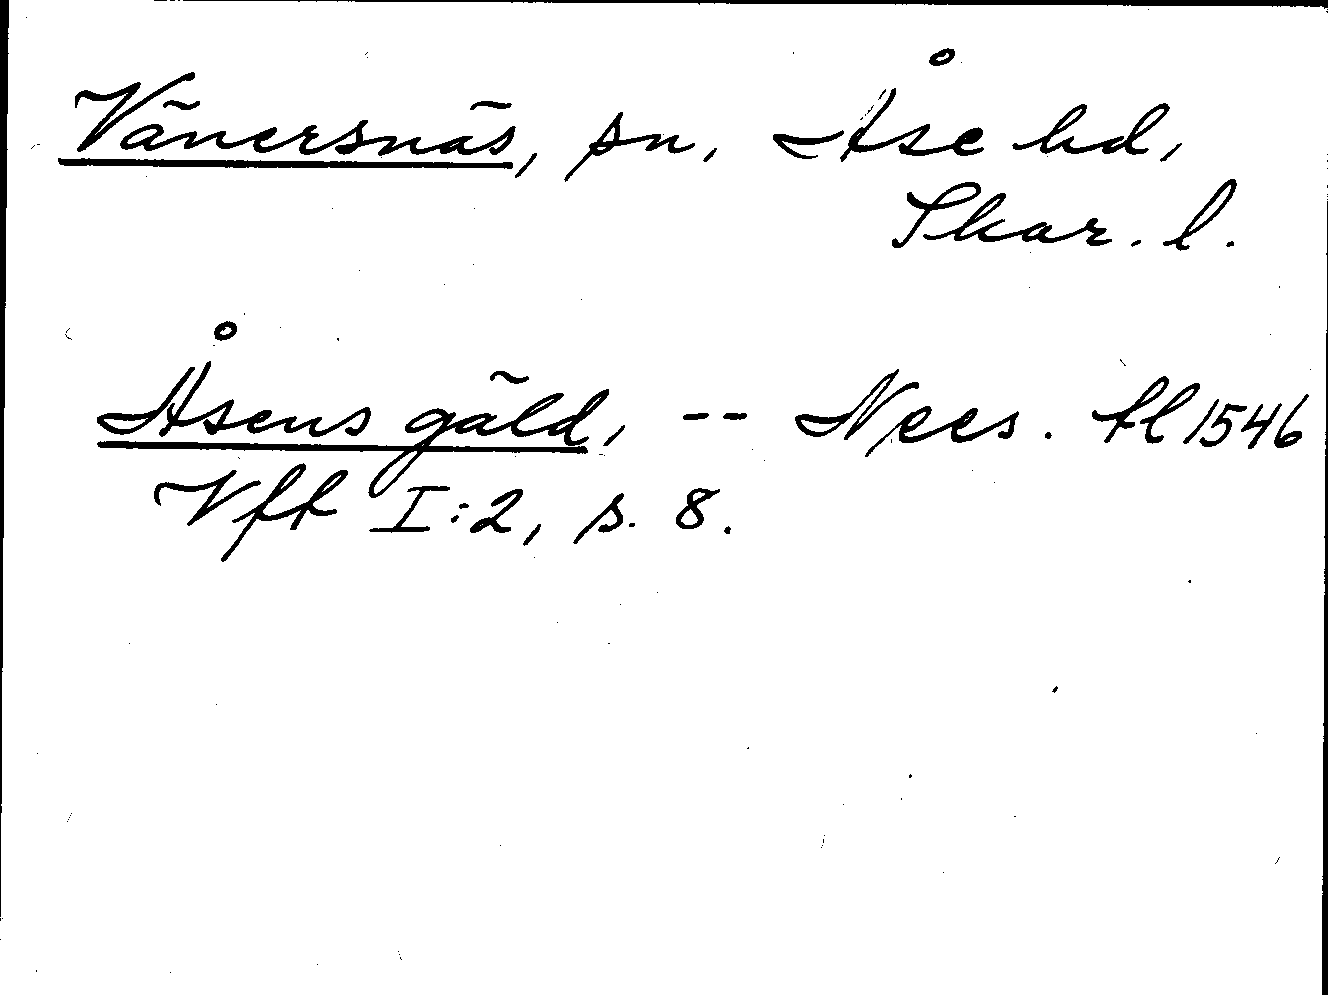 Vänersnäs, sn, Åse hd,
Skar. l.
Åsens gäld, -- Nees. fl 1546
Vft I:2, s. 8.